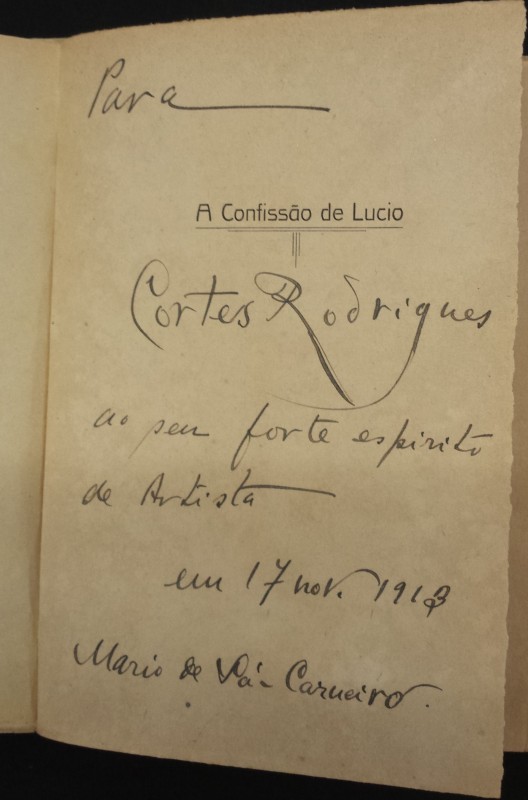 Para
A Confissão de Lucio
Cortes Rodrigues
ao seu forte espirito
de Artista
em 17 nov. 1913
Mario de Sá-Carneiro.